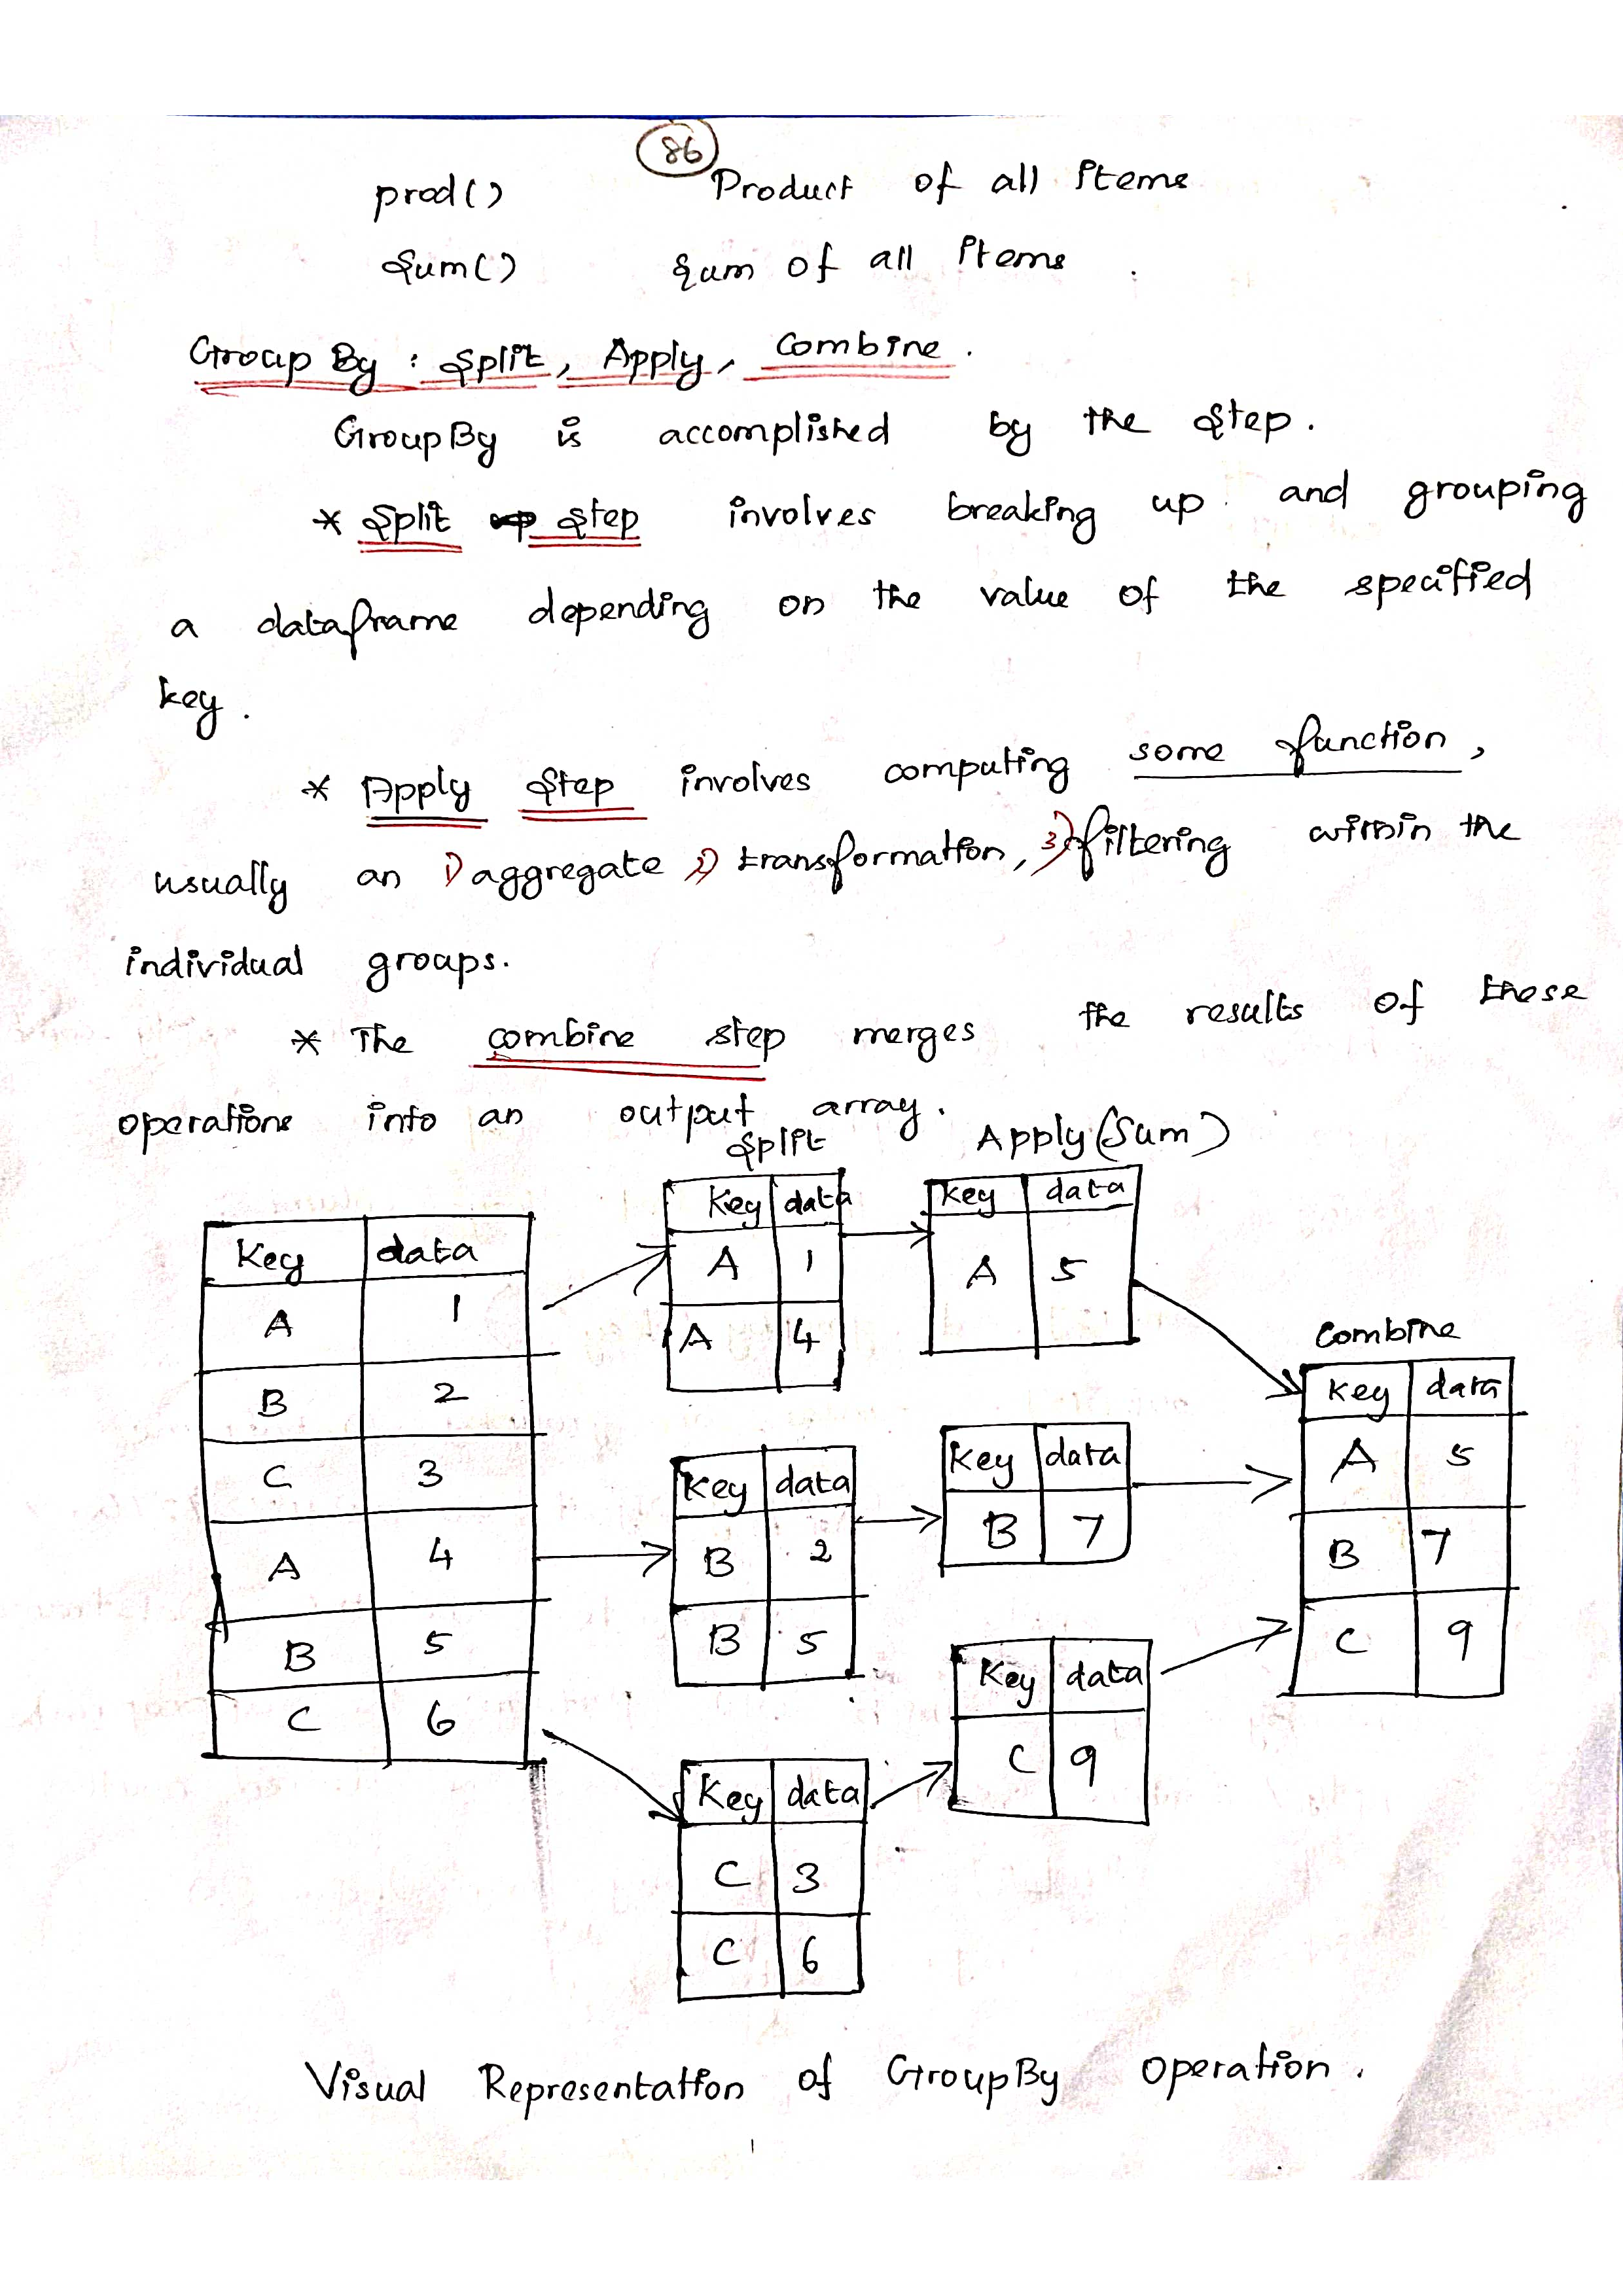 86
prod() Product of all items
sum() sum of all items.
Group By : split, Apply, Combine.
GroupBy is accomplished by the step.
* split step involves breaking up and grouping
a dataframe depending on the value of the specified
key.
* Apply step involves computing some function,
usually an 1) aggregate 2) transformation, 3) filtering within the
individual groups.
* The combine step merges the results of these
operations into an output array.
split Apply(sum)
Key data
A 1
B 2
C 3
A 4
B 5
C 6
Key data
A 1
A 4
Key data
B 2
B 5
Key data
C 3
C 6
Key data
A 5
Key data
B 7
Key data
C 9
Combine
Key data
A 5
B 7
C 9
Visual Representation of GroupBy operation.